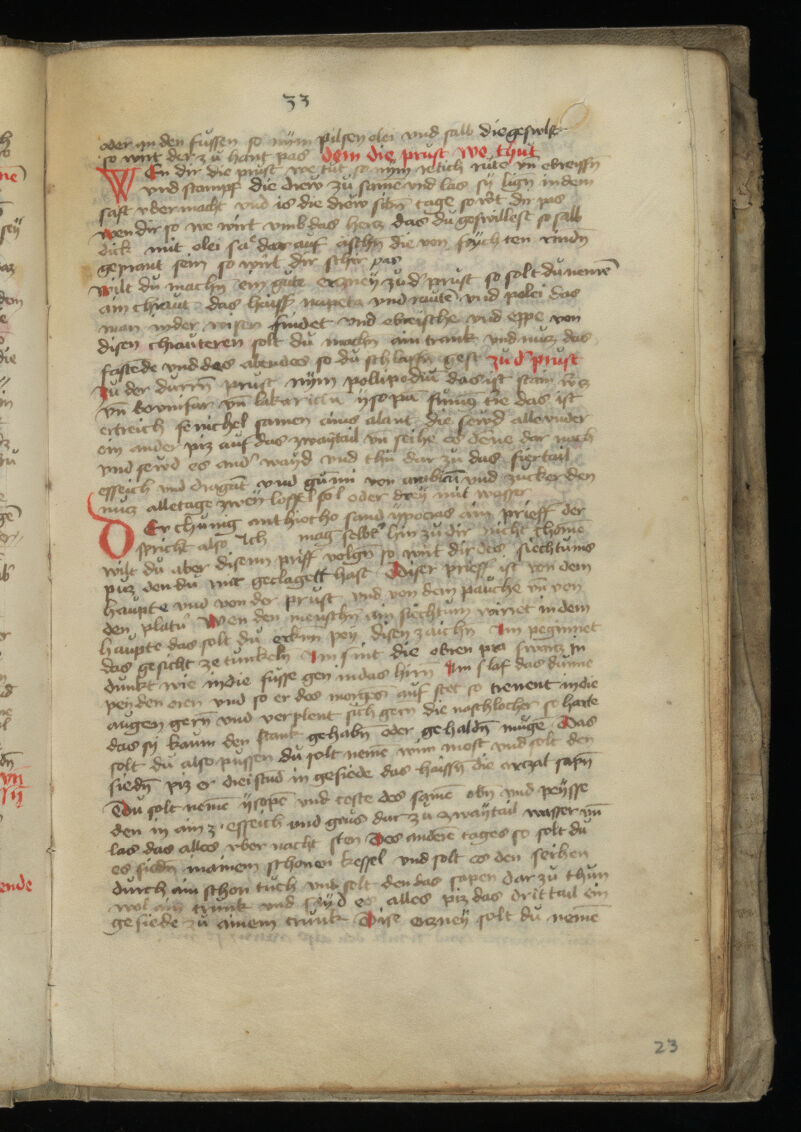 33
oder an den fussen so nym pilsen olei vnd salb die geswlst
so wirt der zu hant pas dem die prust we thut
WEn dir die prust we tut so nym retich rute vn̄
vnd stampf die drew zu same vnd las sy lign in dem
saft vber nacht vnd is die drew siben tage so wirt dir pas
wen dir so we wirt vmb das hertz das du geswillest so salb
dick mit olei dar auf aschn die von feychten rindn
geprant sein so wirt dir schir pas
wilt du machn ein gute ertzney zu d' prust so solt du nemē
ain chraut das haisst napeta vnd raute vnd polei das
man in der wisen findet vnd ebreische vnd eppe von
disen chrauteren solt du machn ain trank vnd nutz das
fastede vnd des abendes so du schlaffn gest zu d' prust
Zu der durrn prust nym pollipodiū das ist stain
vn̄ vn̄ das ist
ertreich fenichel samen alant die sewd alle vnder
ein ander piz auf das zwaytail vn̄ seihe es dar nach
vnd sewd es and' wayd vnd thu dar zu das fiertail
essich vnd dragāt vnd gum̄i von arabicū vnd zucker den
nutz alletage zwen loffel fol oder drey mit wasser
DEr chunig anthiocho sand ypocras ain prieff der
spricht also Ich mag selb' hin zu dir nicht chomē
wilt du aber disem priff volgn so wirt dir des siechtums
puz den du mir geclagett hast Diser prieff ist von dem
haupte vnd von der prust vnd von dem pauche vn̄ von
den platn̄ Wen den menschn ain siechtum wirret in dem
haupte das solt du erkēn pey disen zaichn Im peginnet
das gesicht ze tunkeln Im sint die obren pra swartz In
dunkt wie in die fusse gen in das hirn Im slaf das
pey den oren vnd so er des morges auf stet so trenent in die
augen gern vnd verplent sich gern die naslocher so harte
das sy kaum den stank gehabn oder gehaldn mugē Das
solt du also pussen du solt nemē wein most vnd solt den
siedn piz er drei stund in gesiede das haissn die artzat sapn
Du solt nemē ysopē vnd coste des samē obn vnd peysse
den in ain essich vnd geus dar zu zwaytail wasser vn̄
las das alles vber nacht sten Des andern tages so solt du
es siedn in ainem schonen kessel vnd solt es den seihen
durch ain schon tuch vnd solt den das sapen dar zu thun
wol ain trunk vnd seyd es alles piz das drittail ein
gesiede zu ainem trunk Dise ertzney solt du nemē
23